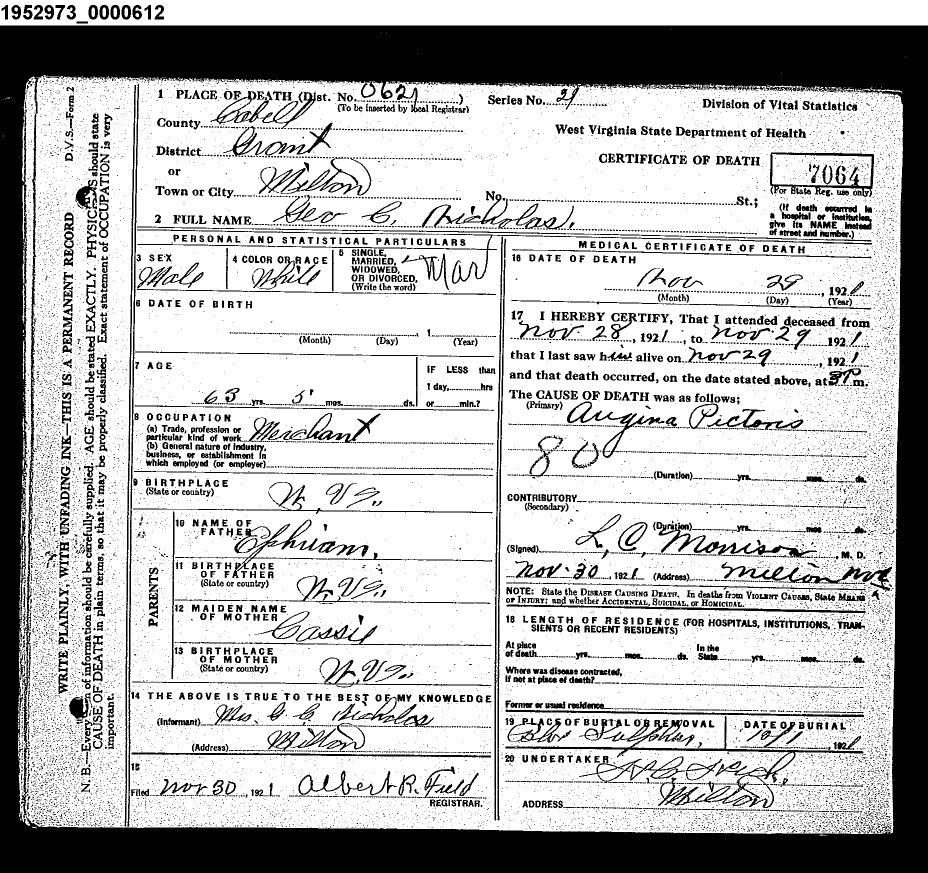 1952973_0000612
D.V.S.—Form 2
WRITE PLAINLY, WITH UNFADING INK—THIS IS A PERMANENT RECORD
N. B.—Every item of information should be carefully supplied. AGE should be stated EXACTLY. PHYSICIANS should state
CAUSE OF DEATH in plain terms, so that it may be properly classified. Exact statement of OCCUPATION is very
important.
1 PLACE OF DEATH (Dist. No. 0621)
(To be inserted by local Registrar)
Series No. 21
Division of Vital Statistics
County Cabell
West Virginia State Department of Health
District Grant
CERTIFICATE OF DEATH
7064
(For State Reg. use only)
or
Town or City Milton No. St.;
(If death occurred in
a hospital or institution,
give its NAME instead
of street and number.)
2 FULL NAME Geo C. Nicholas.
PERSONAL AND STATISTICAL PARTICULARS
3 SEX
Male
4 COLOR OR RACE
White
5 SINGLE,
MARRIED,
WIDOWED,
OR DIVORCED.
(Write the word)
Mar
6 DATE OF BIRTH
, 1
(Month) (Day) (Year)
7 AGE
IF LESS than
1 day, hrs
63 yrs. 5 mos. ds. or min.?
8 OCCUPATION
(a) Trade, profession or
particular kind of work Merchant
(b) General nature of industry,
business, or establishment in
which employed (or employer)
9 BIRTHPLACE
(State or country) W. Va.
PARENTS
10 NAME OF
FATHER Ephriam.
11 BIRTHPLACE
OF FATHER
(State or country) W. Va.
12 MAIDEN NAME
OF MOTHER Cassie
13 BIRTHPLACE
OF MOTHER
(State or country) W. Va.
14 THE ABOVE IS TRUE TO THE BEST OF MY KNOWLEDGE
(Informant) Mrs. G C Nicholas
(Address) Milton
15
Filed Nov 30, 1921 Albert R. Field
REGISTRAR.
MEDICAL CERTIFICATE OF DEATH
16 DATE OF DEATH
Nov 29, 1921
(Month) (Day) (Year)
17 I HEREBY CERTIFY, That I attended deceased from
Nov 28, 1921, to Nov 29 1921
that I last saw him alive on Nov 29, 1921
and that death occurred, on the date stated above, at 3P m.
The CAUSE OF DEATH was as follows;
(Primary) Angina Pictoris
80
(Duration) yrs. mos. ds.
CONTRIBUTORY
(Secondary)
(Duration) yrs. mos. ds.
(Signed) L. C. Morrison, M. D.
Nov-30, 1921 (Address) Milton
NOTE: State the DISEASE CAUSING DEATH. In deaths from VIOLENT CAUSES, State MEANS
OF INJURY; and whether ACCIDENTAL, SUICIDAL, or HOMICIDAL.
18 LENGTH OF RESIDENCE (FOR HOSPITALS, INSTITUTIONS, TRAN-
SIENTS OR RECENT RESIDENTS)
At place
of death yrs. mos. ds.
In the
State yrs. mos. ds.
Where was disease contracted,
if not at place of death?
Former or usual residence
19 PLACE OF BURIAL OR REMOVAL
Blue Sulphur,
DATE OF BURIAL
, 1921
20 UNDERTAKER
ADDRESS Milton